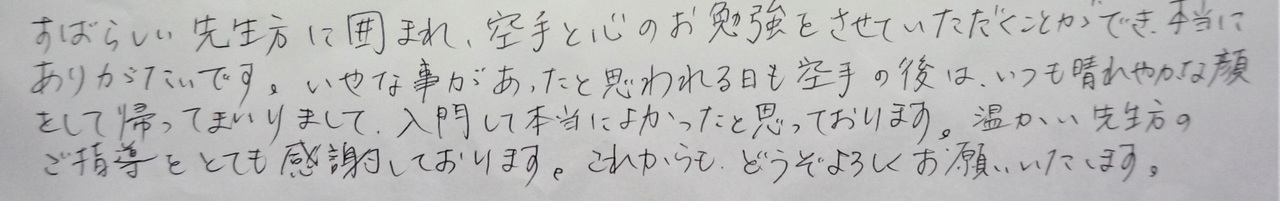 すばらしい先生方に囲まれ、空手と心のお勉強をさせていただくことができ、本当に
ありがたいです。いやな事があったと思われる日も空手の後は、いつも晴れやかな顔
をして帰ってまいりまして、入門して本当によかったと思っております。温かい先生方の
ご指導をとても感謝しております。これからも、どうぞよろしくお願いいたします。